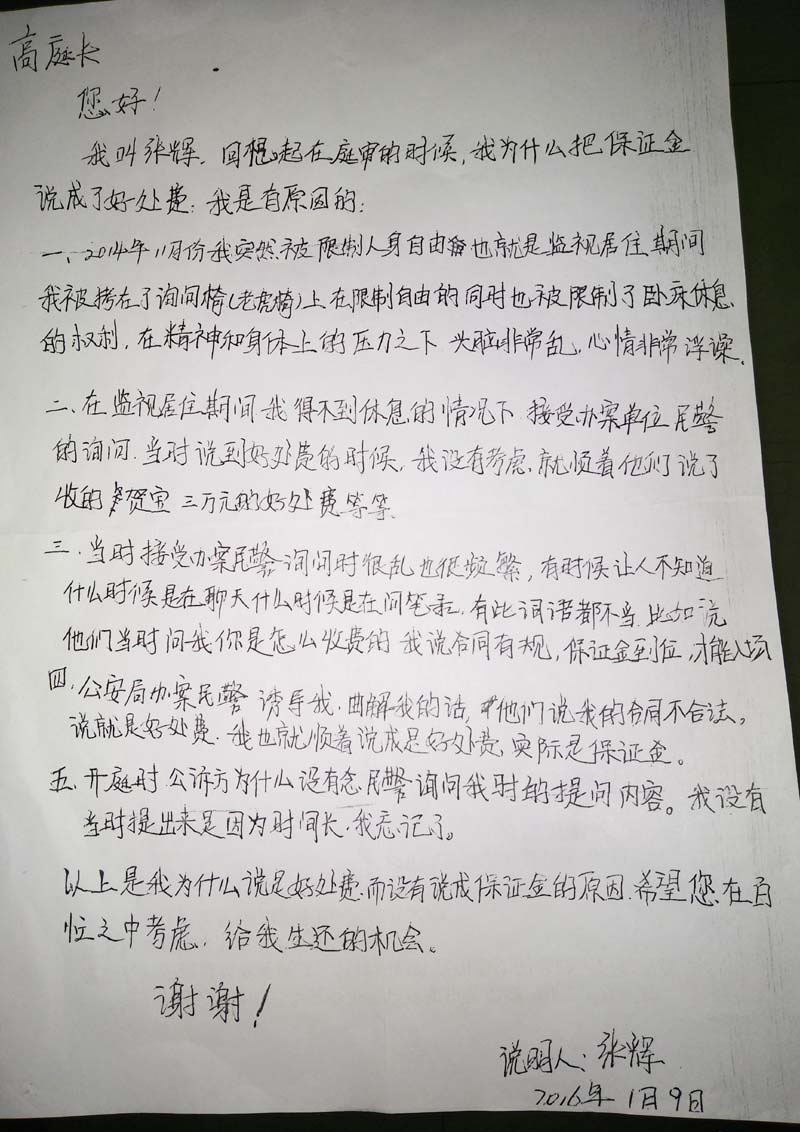 高庭长
您好！
我叫张辉，回想起在庭审的时候，我为什么把保证金
说成了好处费；我是有原因的：
一、2014年11月份我突然被限制人身自由 也就是监视居住期间
我被拷在了询问椅（老虎椅）上 在限制自由的同时也被限制了卧床休息
的权利，在精神和身体上的压力之下 头脑非常乱，心情非常浮躁。
二、在监视居住期间我得不到休息的情况下 接受办案单位民警
的询问．当时说到好处费的时候，我没有考虑．就顺着他们说了
收的 贺宝 三万元的好处费等等．
三．当时接受办案民警询问时很乱也很频繁，有时候让人不知道
什么时候是在聊天什么时候是在问笔录，有些词语都不当．比如说
他们当时问我你是怎么收费的 我说合同有规，保证金到位，才能入场
四．公安局办案民警 诱导我．曲解我的话， 他们说我的合同不合法，
说就是好处费．我也就顺着说成是好处费，实际是保证金。
五、开庭时 公诉方为什么没有念民警询问我时的提问内容。我没有
当时提出来是因为时间长．我忘记了。
以上是我为什么说是好处费．而没有说成保证金的原因．希望您在百
忙之中考虑，给我生还的机会。
谢谢！
说明人：张辉
2016年1月9日